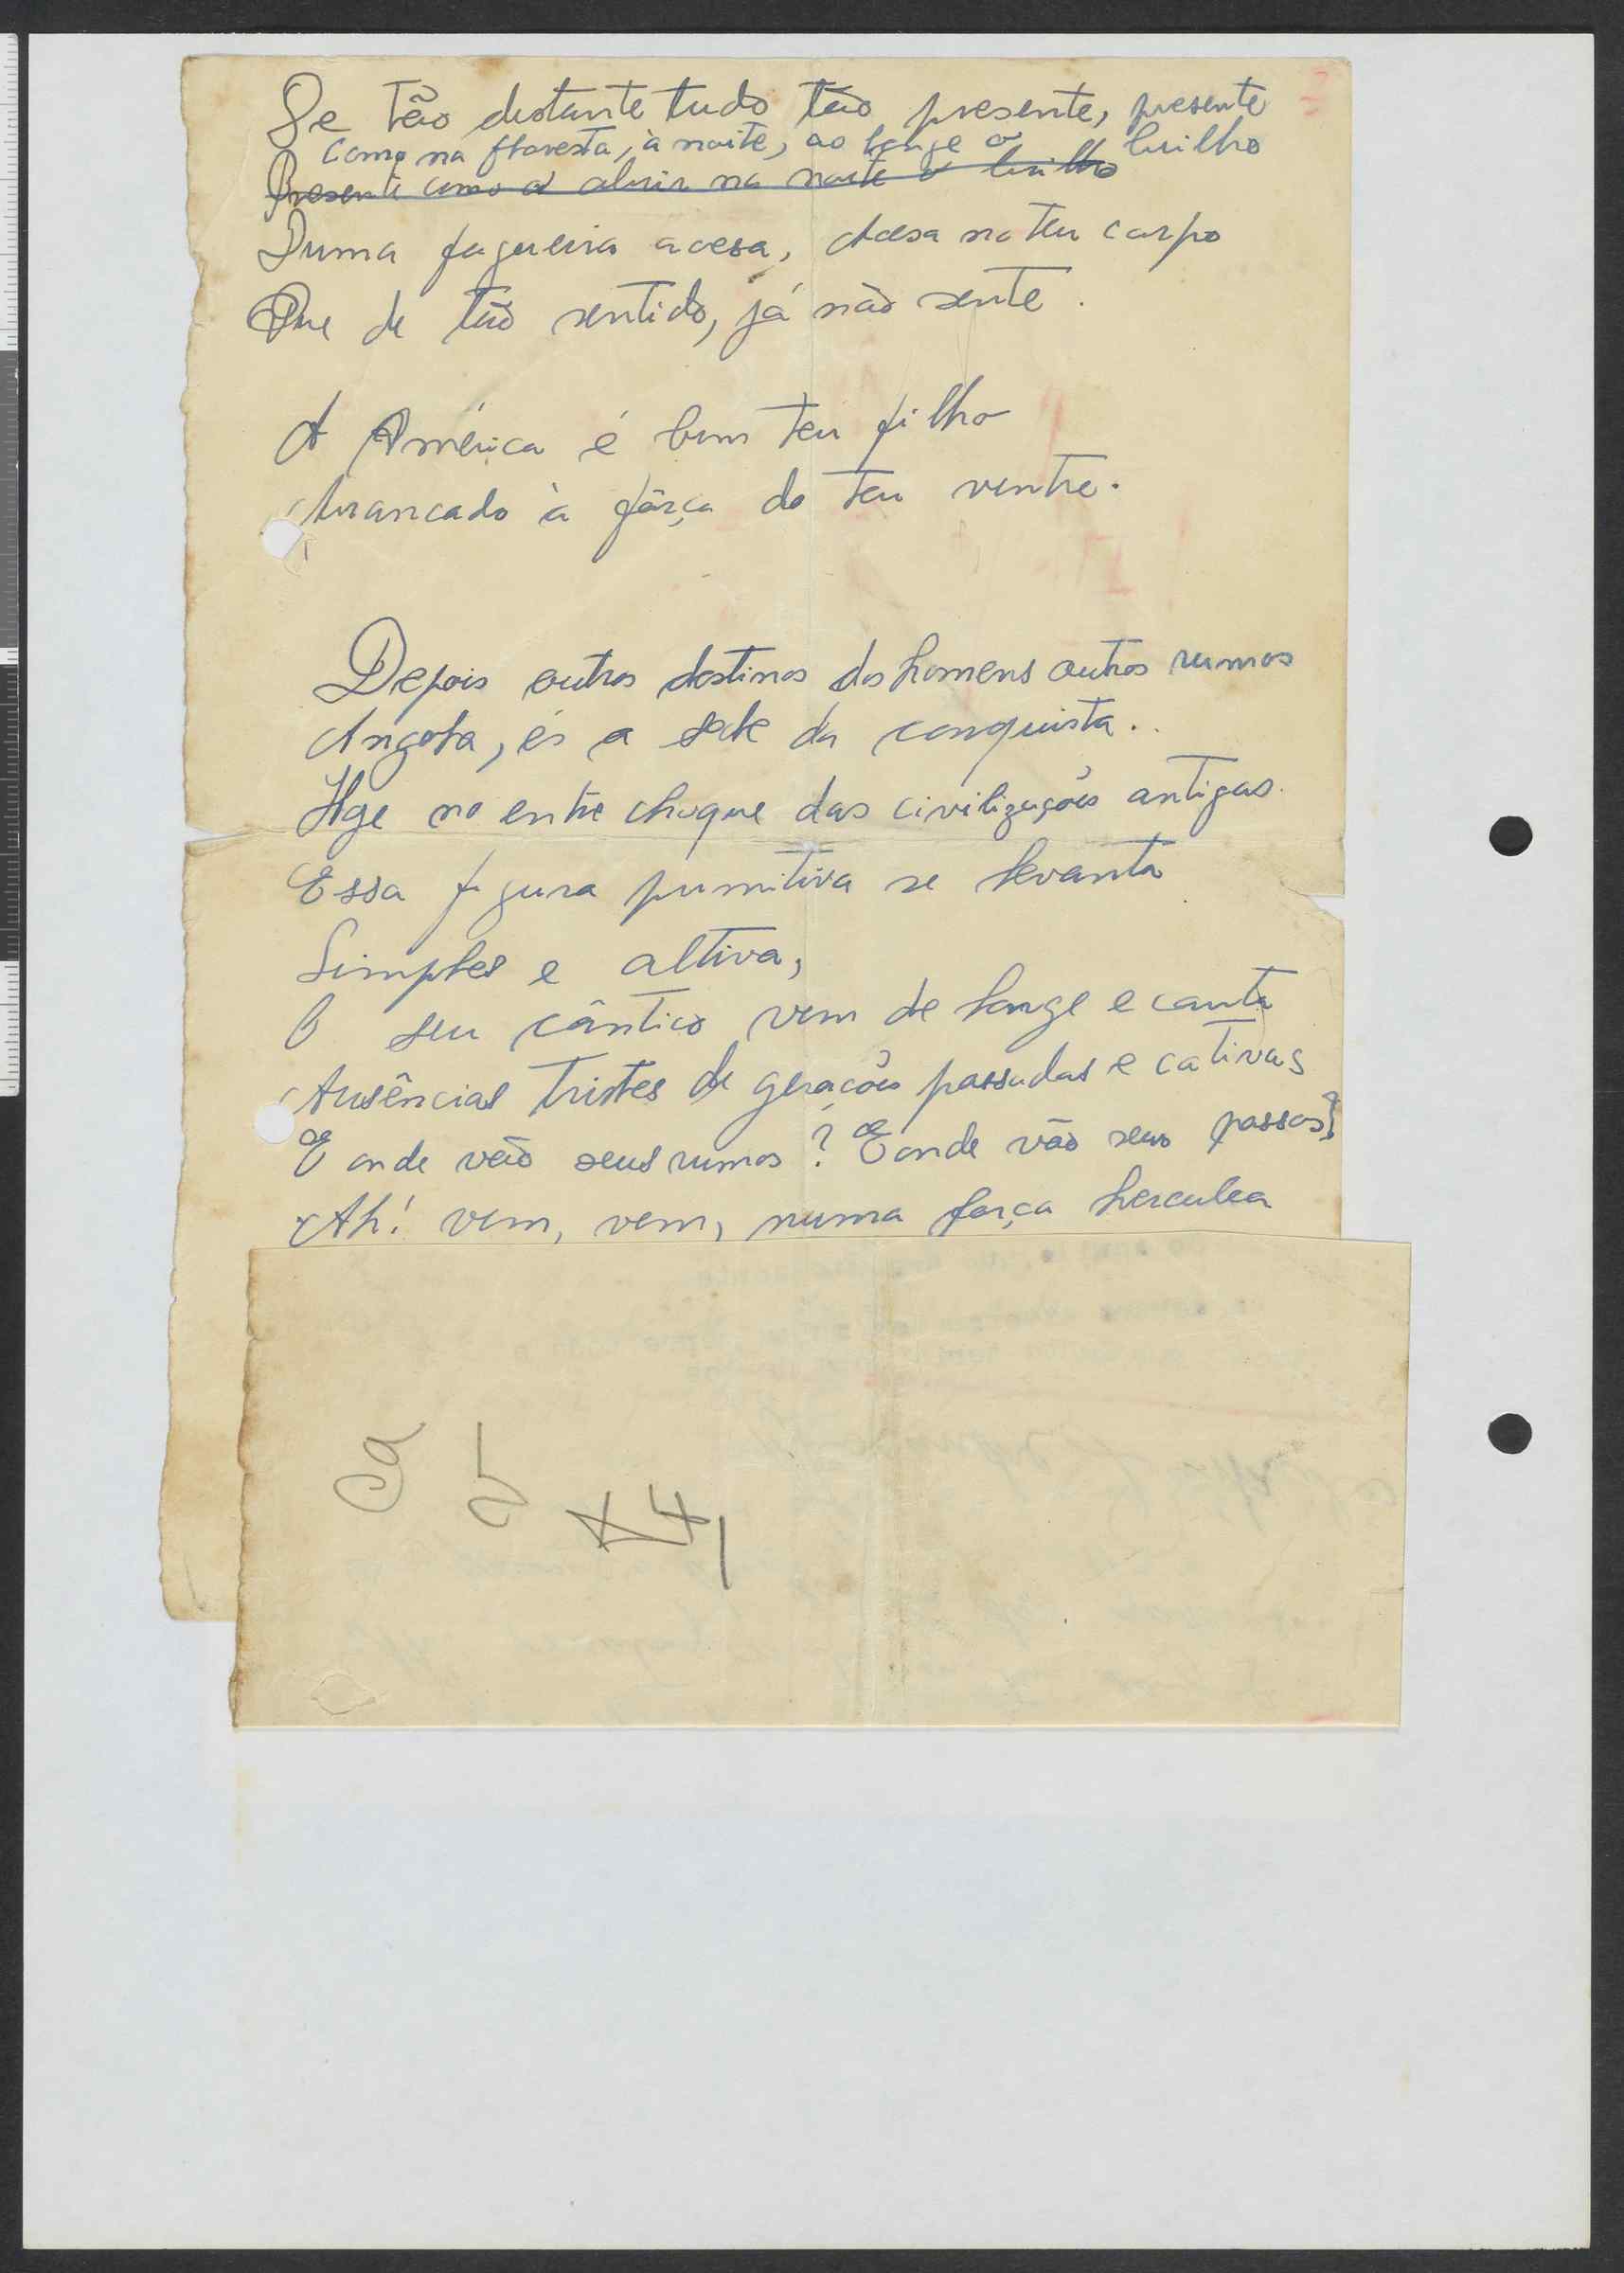 De tão distante tudo tão presente, presente
como na floresta, à noite, ao longe o brilho
Presente como a abrir na noite o brilho
Duma fogueira acesa, Acesa no teu corpo
Que de tão sentido, já não sente.
A América é bem teu filho
Arrancado à fôrça do teu ventre.
Depois outros destinos dos homens outros rumos
Angola, és a sede da conquista.
Hoje no entre choque das civilizações antigas.
Essa figura primitiva se levanta
Simples e altiva,
O seu cântico vem de longe e canta
Ausências tristes de gerações passadas e cativas
E onde vão seus rumos? E onde vão seus passos?
Ah! vem, vem, numa força herculea